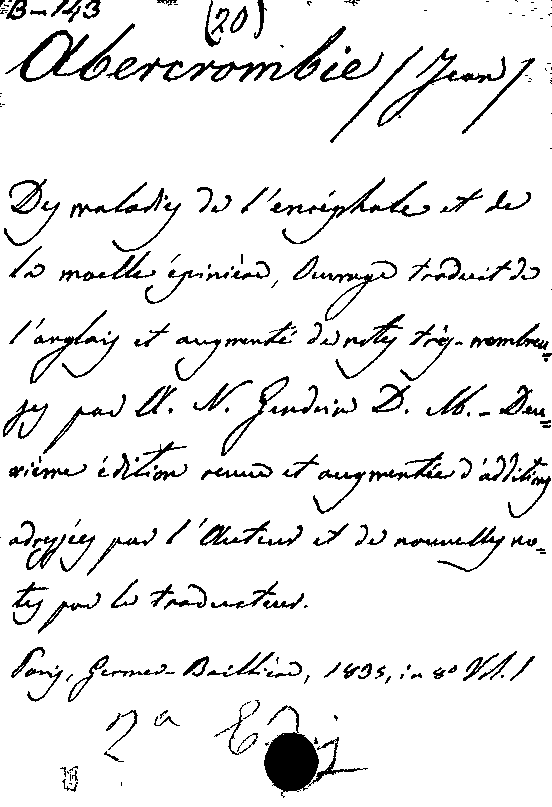 B-143
(20)
Abercrombie (Jean)
Des maladies de l'encéphale et de
la moelle épinière, Ouvrage traduit de
l'anglais et augmenté de notes très-nombreu=
ses par A. N. Gendrin D. M. - Deu=
xième édition revue et augmentée d'additions
adressées par l'Auteur et de nouvelles no=
tes par le traducteur.
Paris, Germer-Baillière, 1835, in 8º Vol. 1
2ª